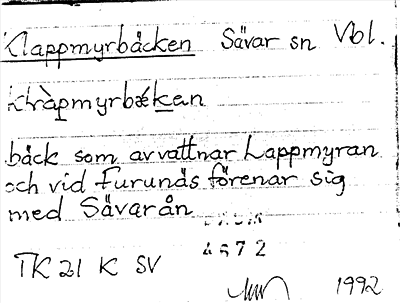 Klappmyrbäcken Sävar sn Vbl.
bäck som avvattnar Lappmyran
och vid Furunäs förenar sig
med Sävarån
4672
TK 21 K SV
1992